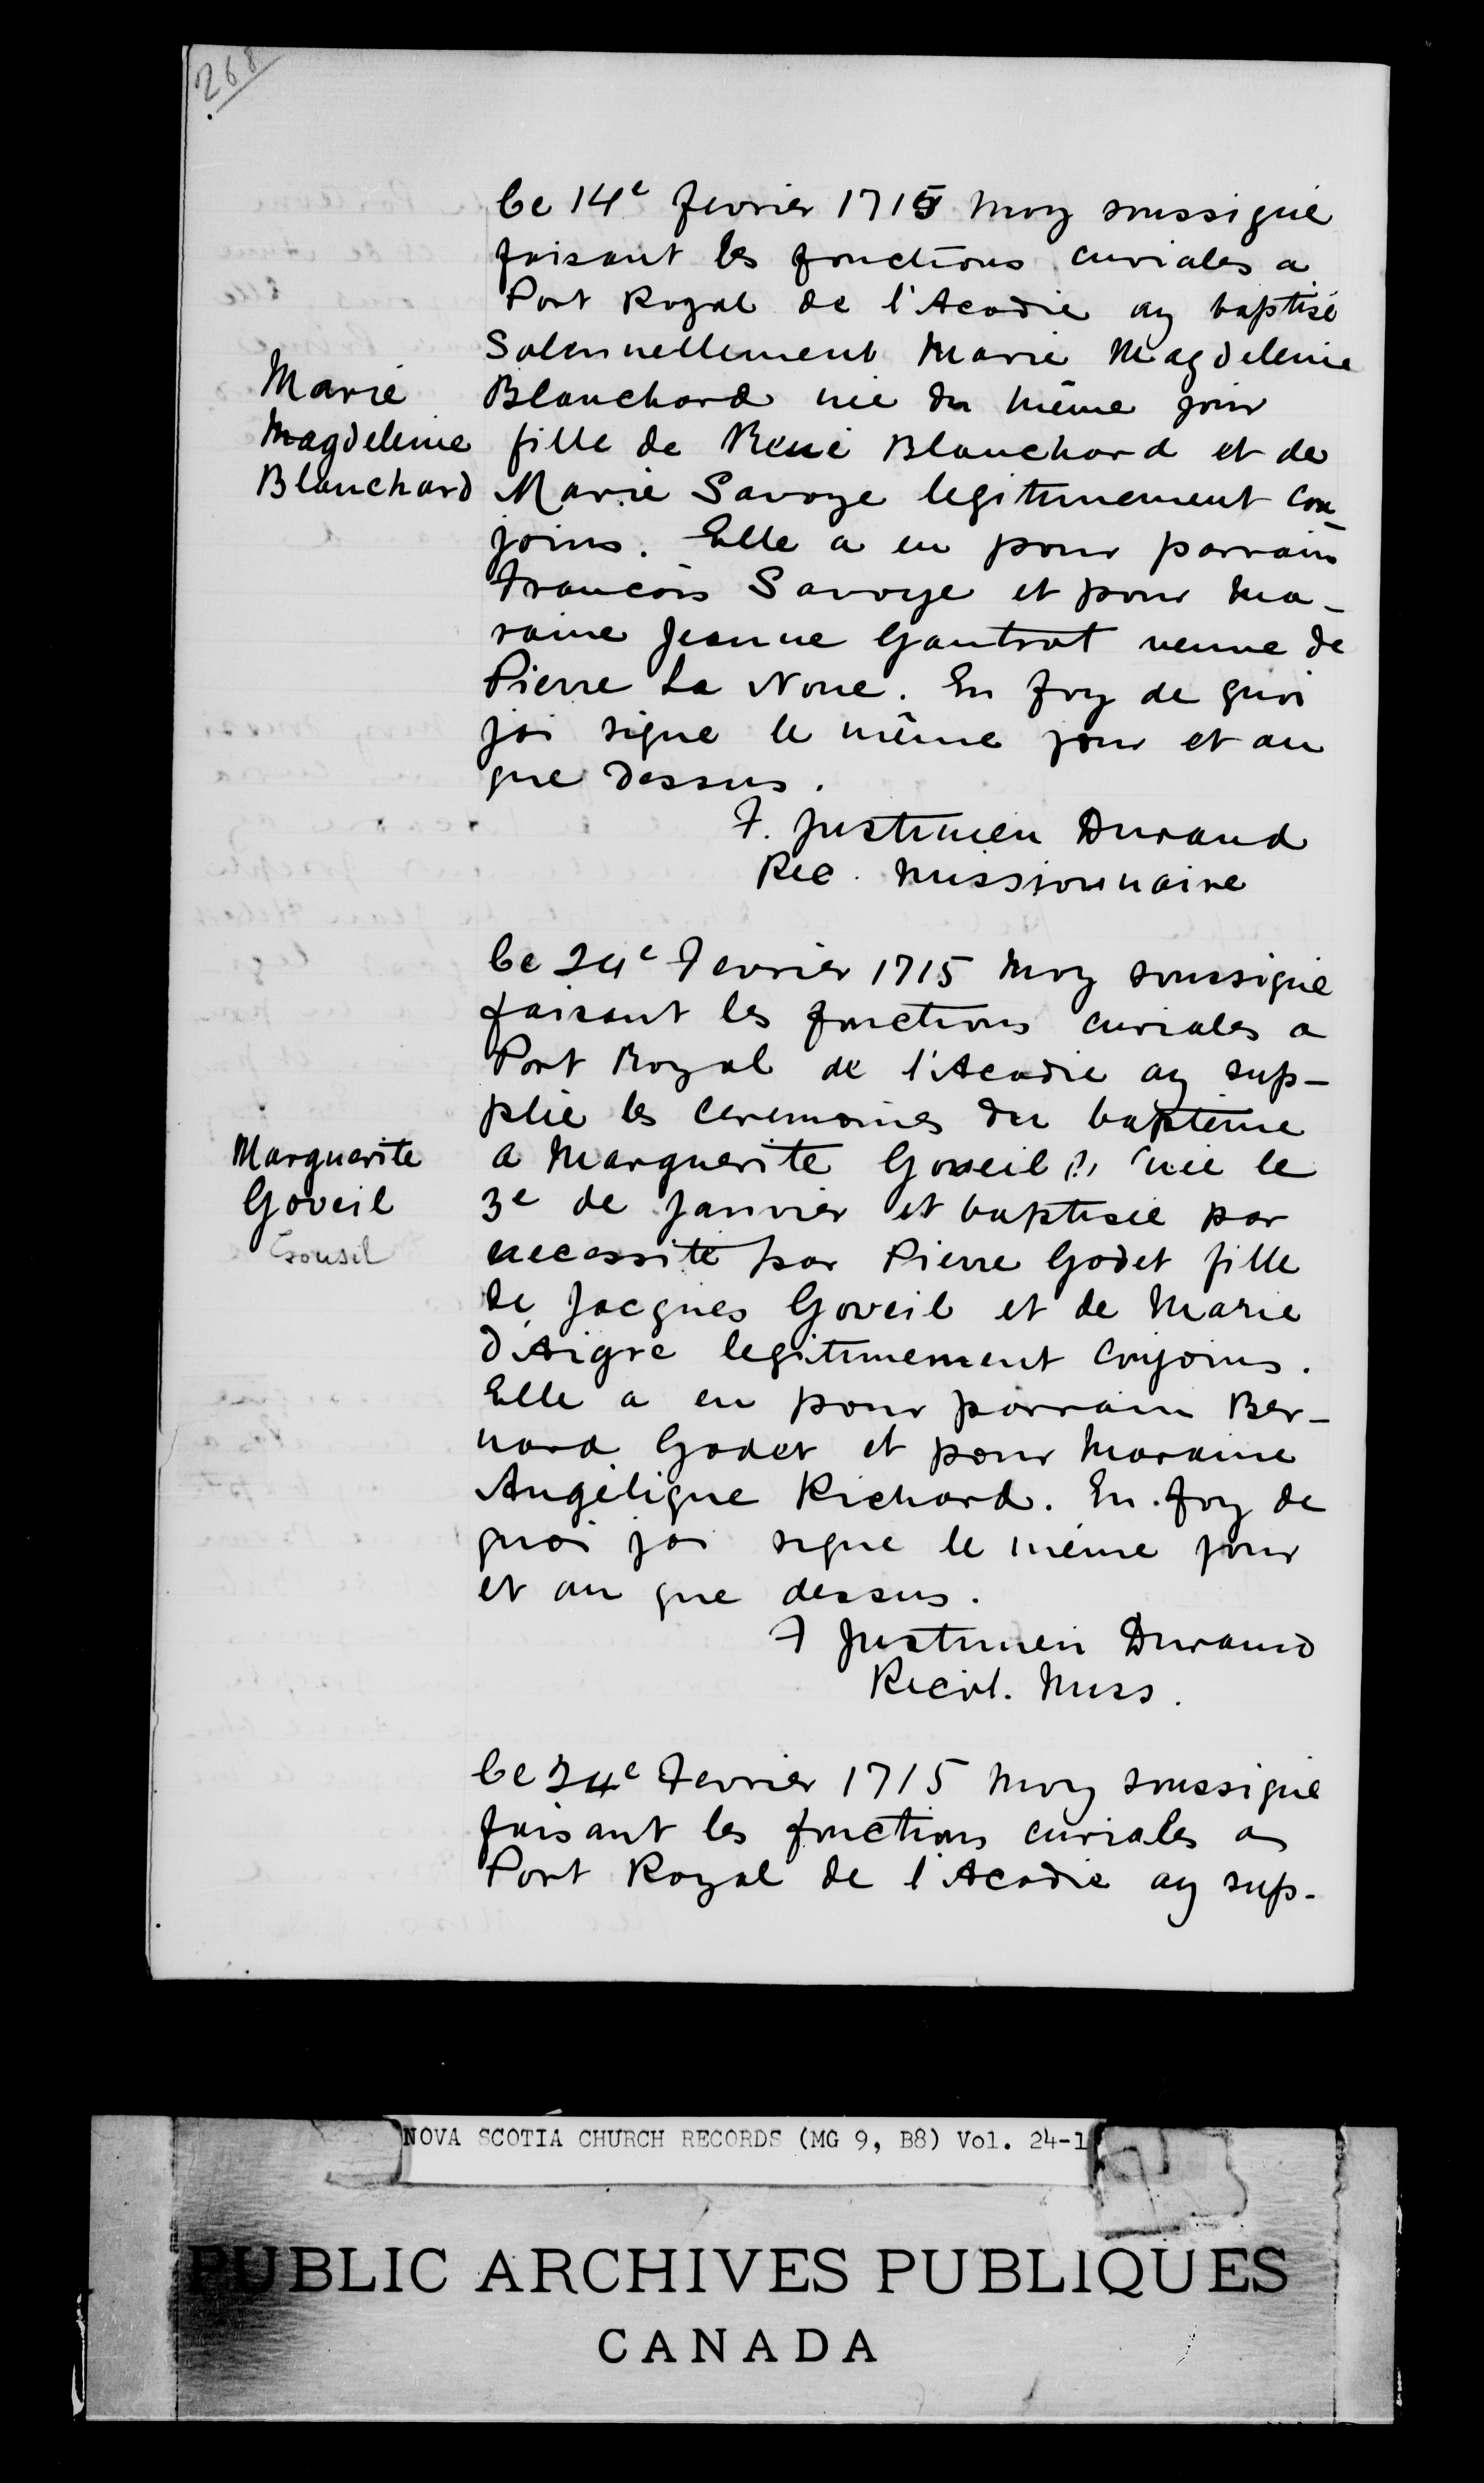 268
Ce 14e fevrier 1715 moy soussigné
faisant les fonctions curiales a
Port Royal de l'Acadie ay baptisé
Solennellement Marie Magdeleine
Marie
Magdeleine
Blanchard
Blanchard née du même jour
fille de René Blanchard et de
Marie Savoye legitimement con-
joins. Elle a eu pour parrain
Francois Savoye et pour ma-
raine Jeanne Gautrot veuve de
Pierre La Noue. En foy de quoi
jai signe le même jour et an
que dessus.
F. Justinien Durand
Rec. missionnaire
Ce 24e Fevrier 1715 moy soussigné
faisant les fonctions curiales a
Port Royal de l'Acadie ay sup-
plié les ceremonies du baptême
Marguerite
Goveil
Gousil
a Marguerite Goveil (?) née le
3e de Janvier et baptisée par
necessité par Pierre Godet fille
de Jacques Goveil et de Marie
d'Aigre legitimement conjoins.
Elle a eu pour parrain Ber-
nard Godet et pour Maraine
Angélique Richard. En foy de
quoi jai signe le même jour
et an que dessus.
F Justinien Durand
Recol. Miss.
Ce 24e Fevrier 1715 moy soussigné
faisant les fonctions curiales a
Port Royal de l'Acadie ay sup-
NOVA SCOTIA CHURCH RECORDS (MG 9, B8) Vol. 24-1
PUBLIC ARCHIVES PUBLIQUES
CANADA